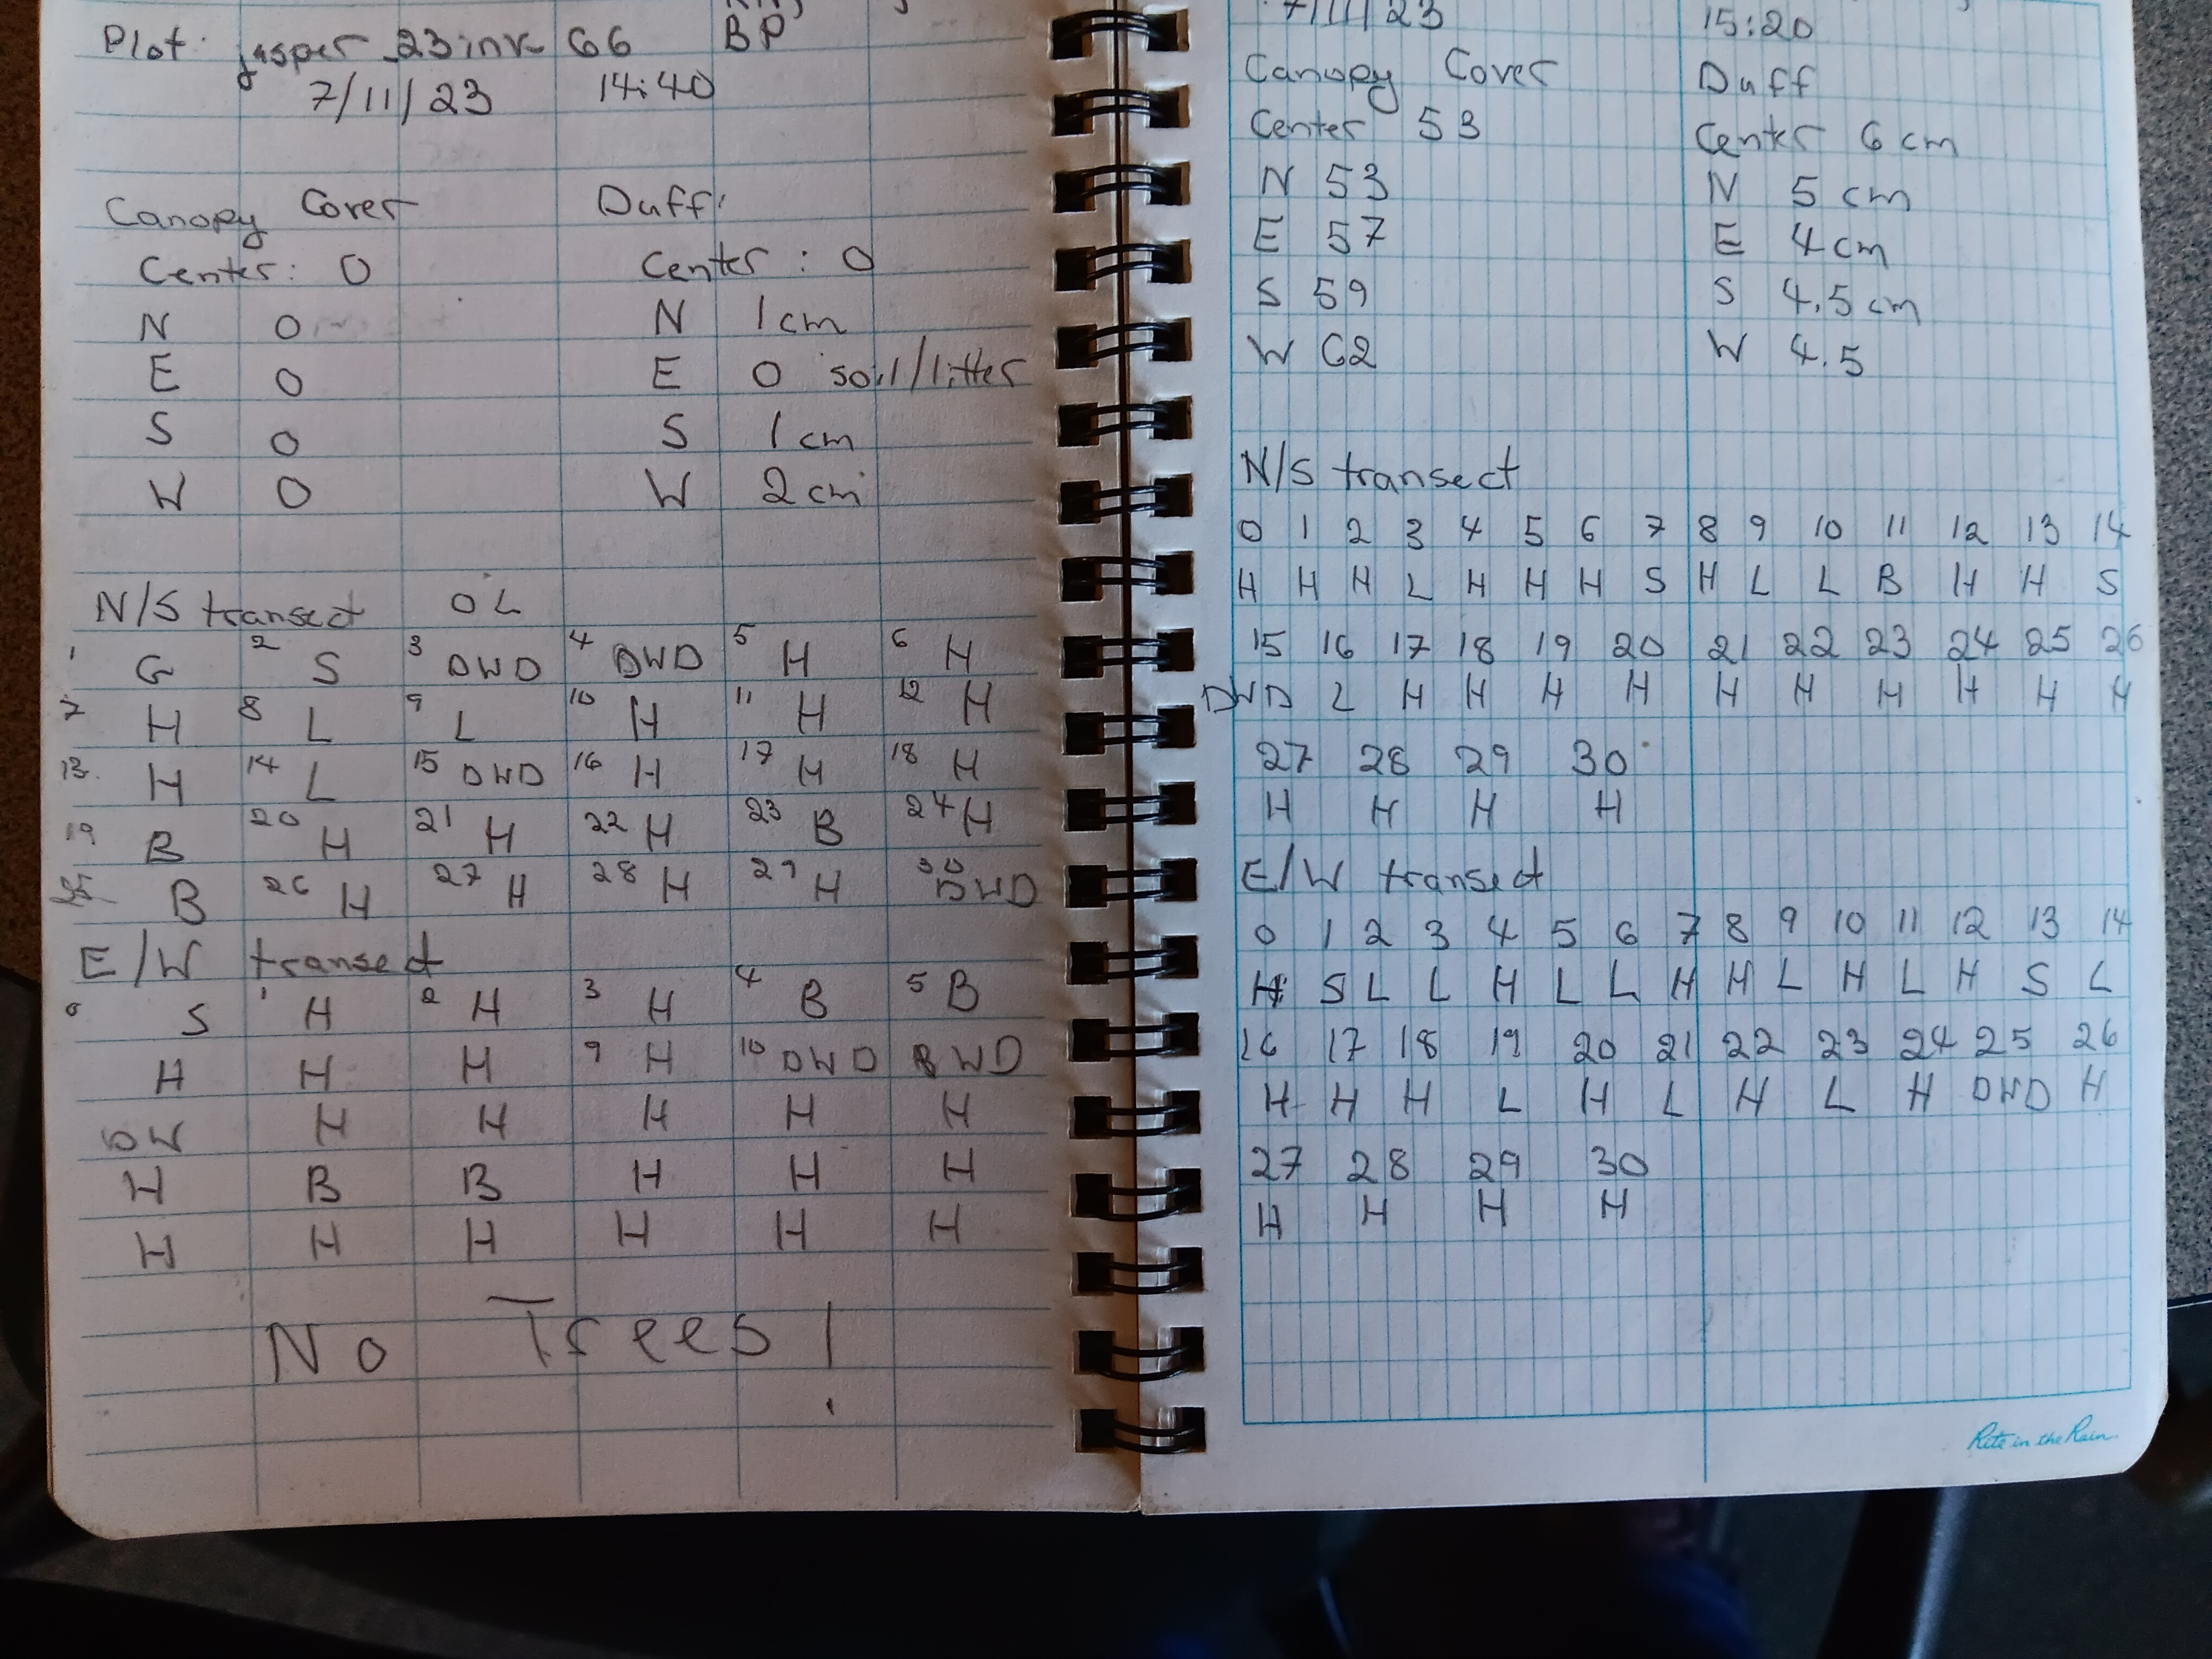 Plot: jasper_23inv66 BP
7/11/23 14:40
Canopy Cover Duff:
Center: 0 Center: 0
N 0 N 1cm
E 0 E 0 soil/litter
S 0 S 1cm
W 0 W 2cm
N/S transect 0 L
1 G 2 S 3 DWD 4 DWD 5 H 6 H
7 H 8 L 9 L 10 H 11 H 12 H
13. H 14 L 15 DWD 16 H 17 H 18 H
19 B 20 H 21 H 22 H 23 B 24 H
B 26 H 27 H 28 H 29 H 30 DWD
E/W transect
0 S 1 H 2 H 3 H 4 B 5 B
H H H 9 H 10 DWD WD
DW H H H H H
H B B H H H
H H H H H H
No Trees!
7/11/23 15:20
Canopy Cover Duff
Center 53 Center 6cm
N 53 N 5 cm
E 57 E 4cm
S 59 S 4.5cm
W 62 W 4.5
N/S transect
0 1 2 3 4 5 6 7 8 9 10 11 12 13 14
H H H L H H H S H L L B H H S
15 16 17 18 19 20 21 22 23 24 25 26
DWD L H H H H H H H H H H
27 28 29 30
H H H H
E/W transect
0 1 2 3 4 5 6 7 8 9 10 11 12 13 14
H S L L H L L H H L H L H S L
16 17 18 19 20 21 22 23 24 25 26
H H H L H L H L H DWD H
27 28 29 30
H H H H
Rite in the Rain